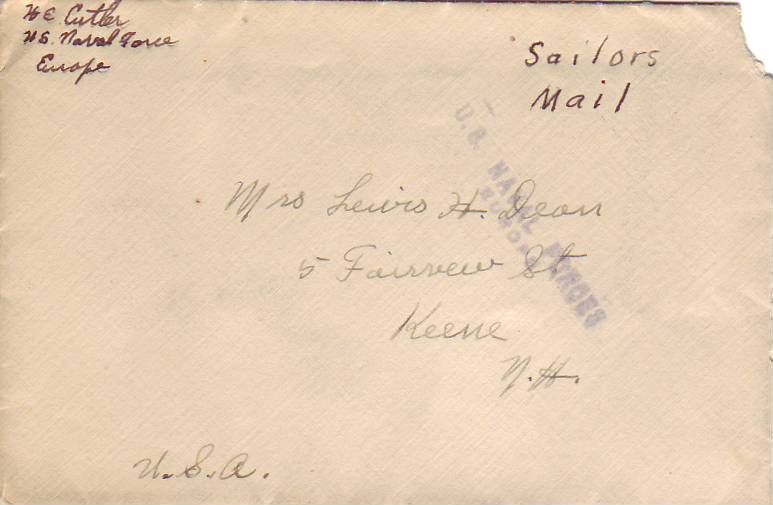 H E Cutler
U.S. Naval Force
Europe
Sailors
Mail
U.S. NAVAL FORCES
EUROPE
Mrs Lewis H. Dean
5 Fairview St
Keene
N.H.
U.S.A.